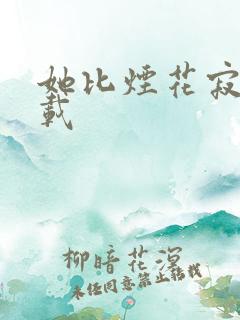 她比煙花寂
載
柳暗花溟
未经同意禁止转载